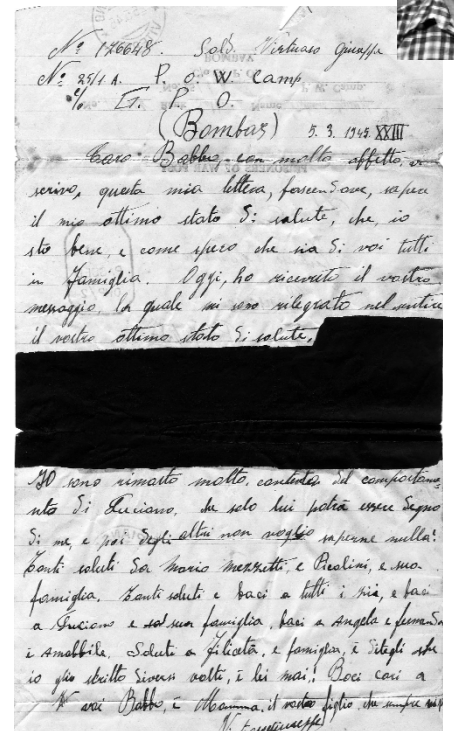 No 126648. Sold. Virtuoso Giuseppe
No 25/1 A. P. O. W Camp,
c/o G. P. O.
(Bombay) 5. 3. 1945. XXIII
Caro Babbo, con molto affetto, vi
scrivo, questa mia lettera, facendove, sapere
il mio ottimo stato di salute, che, io
sto bene, e come spero che sia di voi tutti
in famiglia. Oggi, ho ricevuto il vostro
messaggio, la quale mi sono rilegrato nel sentire
il vostro ottimo stato di salute,
IO sono rimasto molto, contento del comportame
nto di Luciano, che solo lui potrà essere degno
di me, e poi degli altri non voglio saperne nulla!
Tanti saluti da Mario Mezzetti, e Picalini, e sua
famiglia. Tanti saluti e baci a tutti i zii, e baci
a Luciano e sua famiglia, baci a Angela e
è Amabbile. Saluti a Filicata, e famiglia, è ditegli che
io glio scritto diversi volti, è lei mai! Baci cari a
voi Babbo, è Mamma, il vostro figlio, che sempre
V. Giuseppe